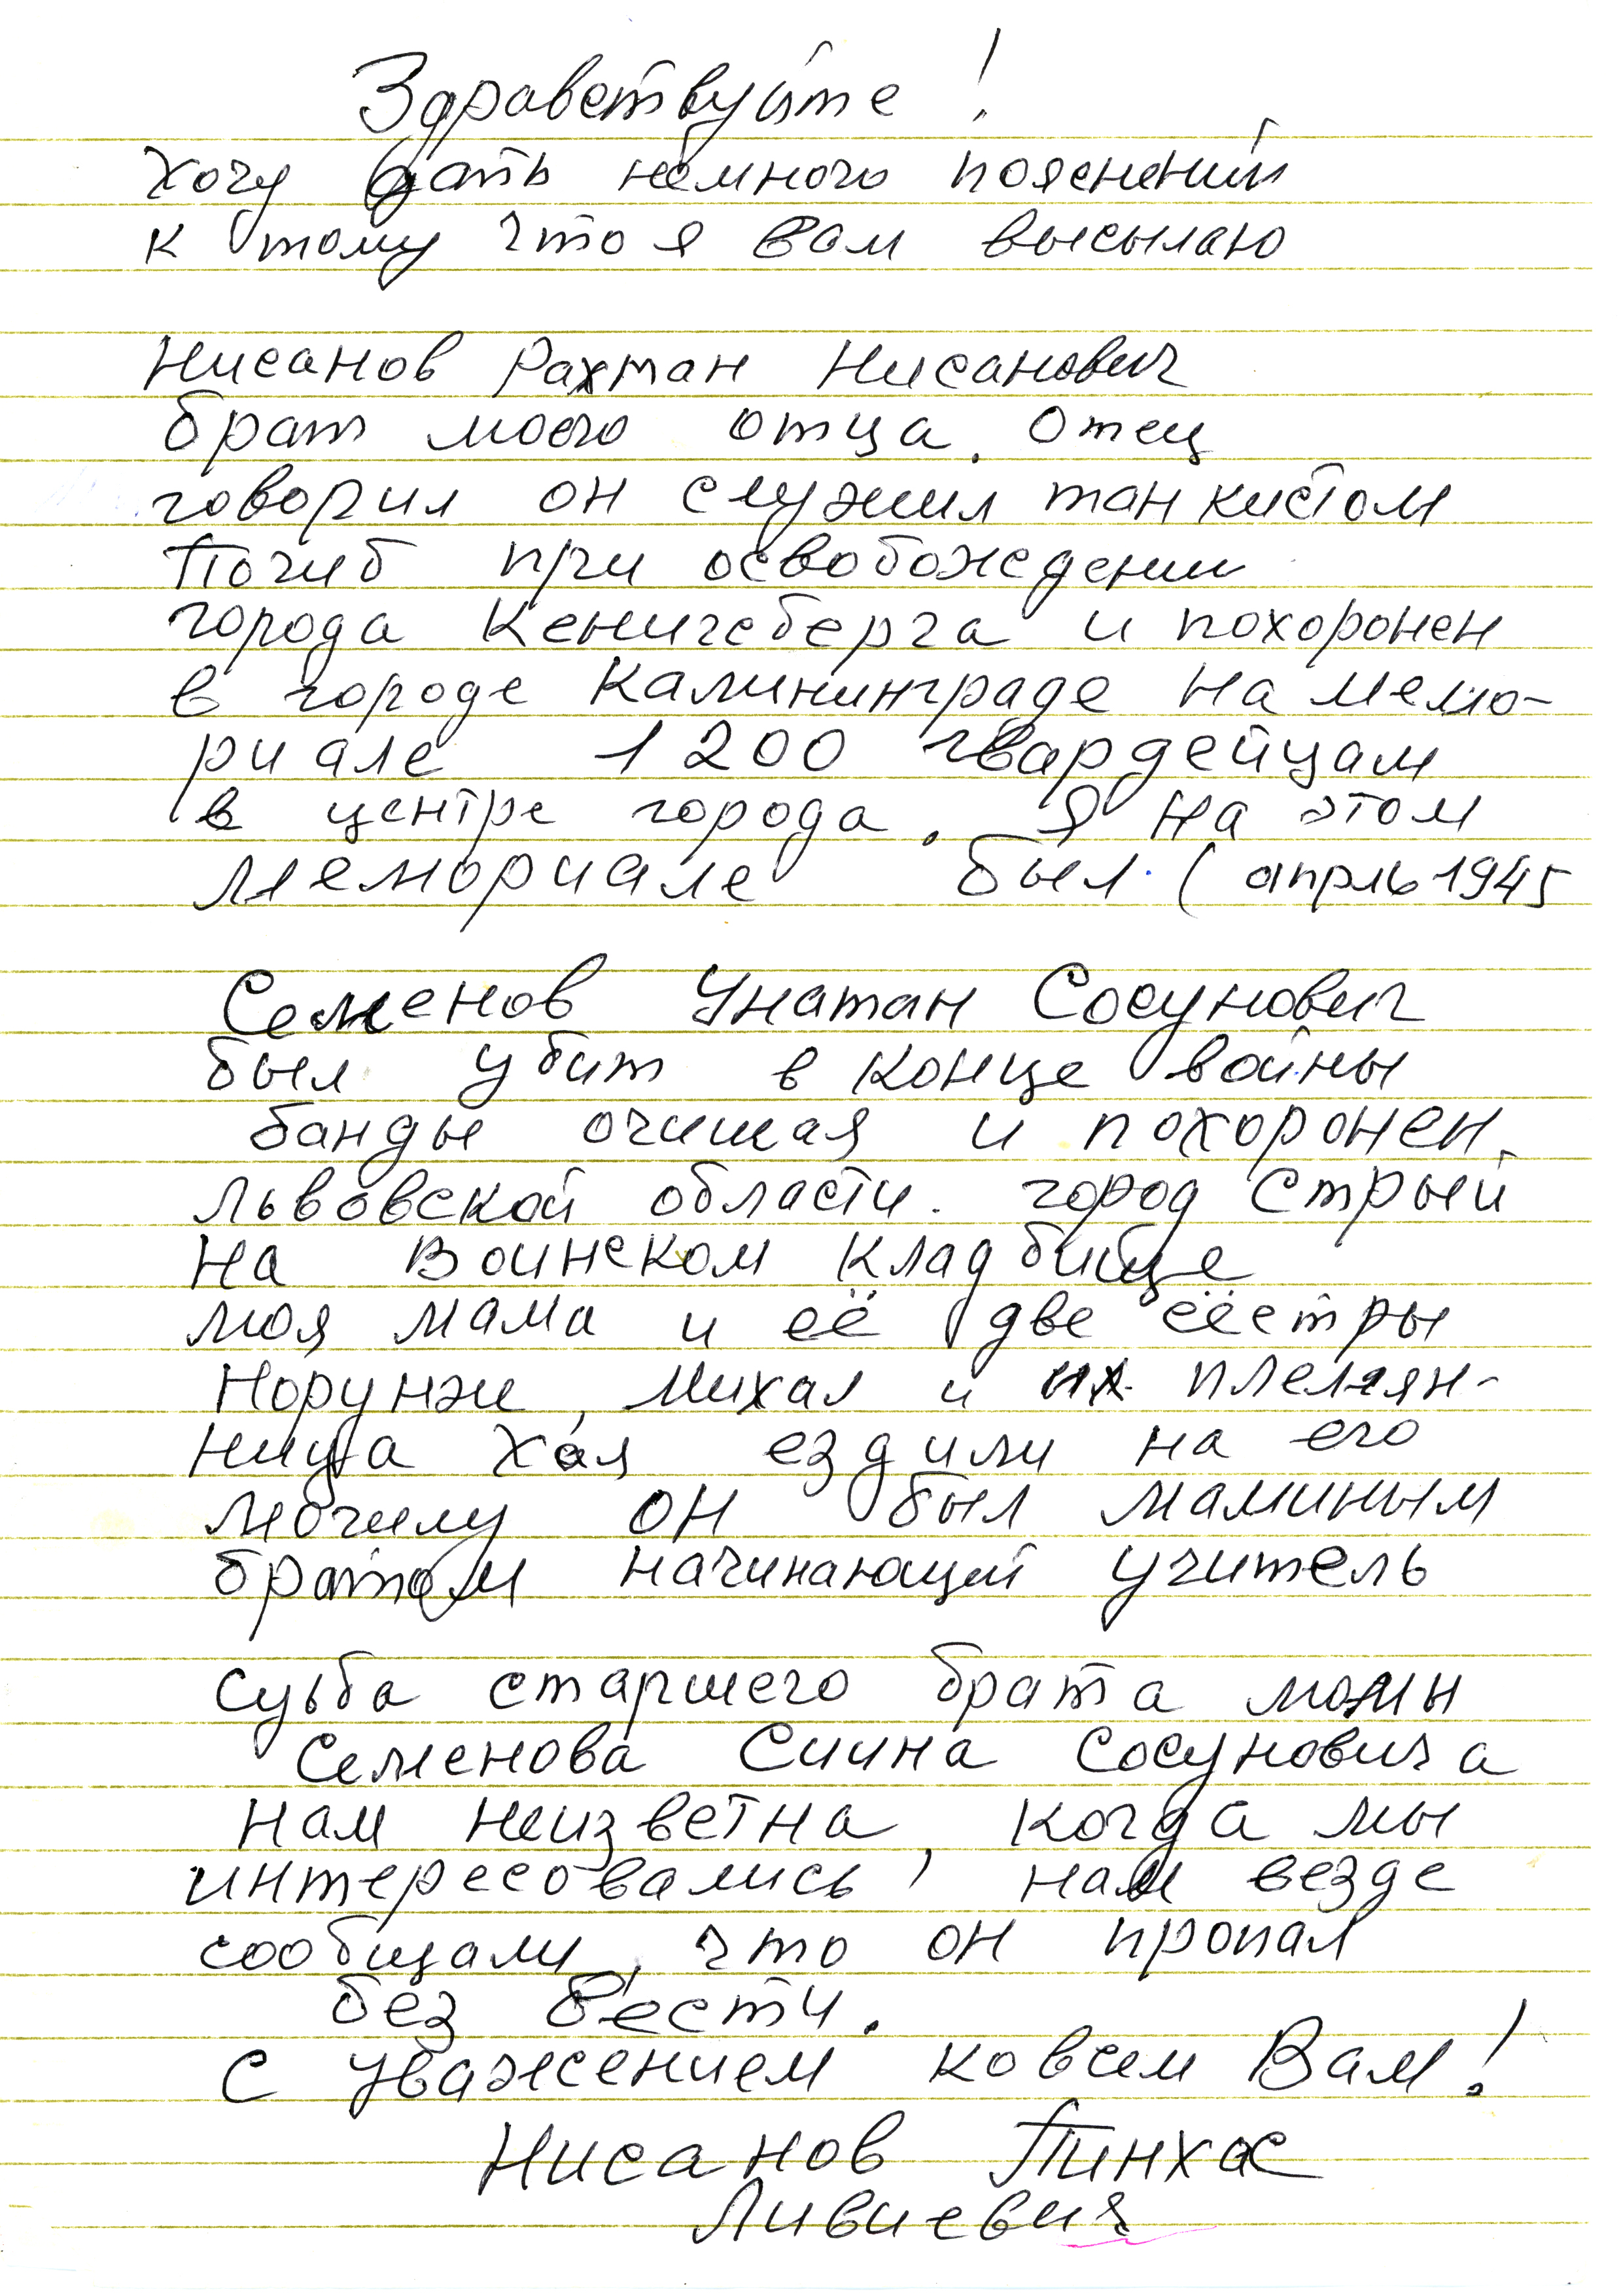 Здравствуйте!
Хочу дать немного пояснений
к тому что я вам высылаю
Нисанов Рахман Нисанович
брат моего отца. Отец
говорил он служил танкистом
Погиб при освобождении
города Кенигсберга и похоронен
в городе Калининграде на мемо-
риале 1200 гвардейцам
в центре города. Я на этом
мемориале был. (апрль 1945
Семенов Унатан Сосунович
был убит в конце войны
банды очищая и похоронен
Львовской области. город Стрый
на Воинском кладбище
моя мама и её две сёстры
Норунжи, Михал и их племян-
ница Хая ездили на его
могилу он был маминым
братом начинающий учитель
Судьба старшего брата мамы
Семенова Сиина Сосуновича
нам неизветна, когда мы
интересовались, нам везде
сообщали, что он пропал
без вести.
С уважением ко всем Вам!
Нисанов Пинхас
Ливиевич